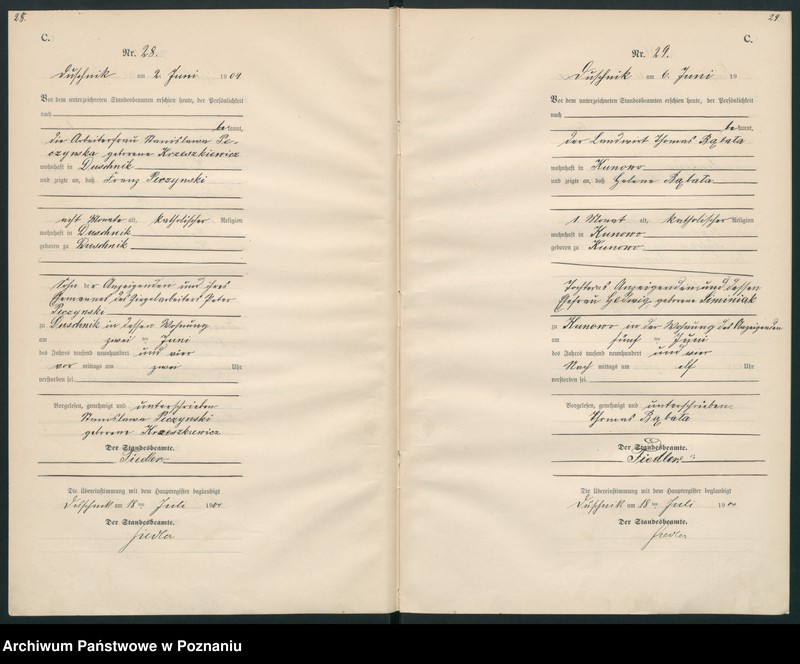 28.
C.
Nr. 28.
Duschnik am 2. Juni 1904
Vor dem unterzeichneten Standesbeamten erschien heute, der Persönlichkeit
nach
bekannt,
die Arbeiterfrau Stanislawa Pe-
czynska geborene Krzeszkiewicz
wohnhaft in Duschnik
und zeigte an, daß Franz Peczynski
acht Monate alt, katholischer Religion
wohnhaft in Duschnik
geboren zu Duschnik
Sohn der Anzeigenden und ihres
Ehemannes, des Ziegelarbeiters Peter
Peczynski
zu Duschnik in dessen Wohnung
am zwei ten Juni
des Jahres tausend neunhundert und vier
vor mittags um zwei Uhr
verstorben sei.
Vorgelesen, genehmigt und unterschrieben
Stanislawa Peczynski
geborene Krzeszkiewicz
Der Standesbeamte.
Fiedler
Die Übereinstimmung mit dem Hauptregister beglaubigt
Duschnik am 18 ten Juli 1904
Der Standesbeamte.
Fiedler
29
C.
Nr. 29.
Duschnik am 6. Juni 19
Vor dem unterzeichneten Standesbeamten erschien heute, der Persönlichkeit
nach
bekannt,
der Landwirt Thomas Bąbata
wohnhaft in Kunowo
und zeigte an, daß Helene Bąbata
1 Monat alt, katholischer Religion
wohnhaft in Kunowo
geboren zu Kunowo
Tochter des Anzeigenden und dessen
Ehefrau Hedwig geborene Seminiak
zu Kunowo in der Wohnung des Anzeigenden
am fünf ten Juni
des Jahres tausend neunhundert und vier
Nach mittags um elf Uhr
verstorben sei.
Vorgelesen, genehmigt und unterschrieben.
Thomas Bąbata
Der Standesbeamte.
Fiedler
Die Übereinstimmung mit dem Hauptregister beglaubigt
Duschnik am 18 ten Juli 1904
Der Standesbeamte.
Fiedler
Archiwum Państwowe w Poznaniu